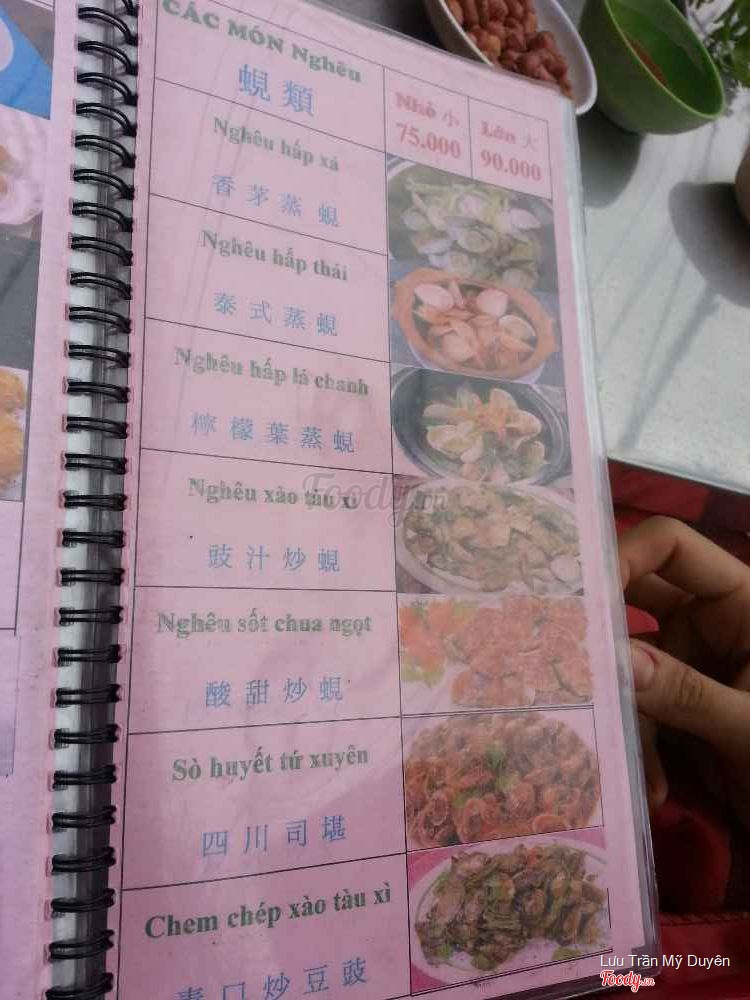 CÁC MÓN Nghêu
蜆類
Nhỏ 小
75.000
Lớn 大
90.000
Nghêu hấp xả
香茅蒸蜆
Nghêu hấp thái
泰式蒸蜆
Nghêu hấp lá chanh
檸檬葉蒸蜆
Nghêu xào tàu xì
豉汁炒蜆
Nghêu sốt chua ngọt
酸甜炒蜆
Sò huyết tứ xuyên
四川司堪
Chem chép xào tàu xì
青口炒豆豉
Foody.vn
Lưu Trần Mỹ Duyên
Foody.vn